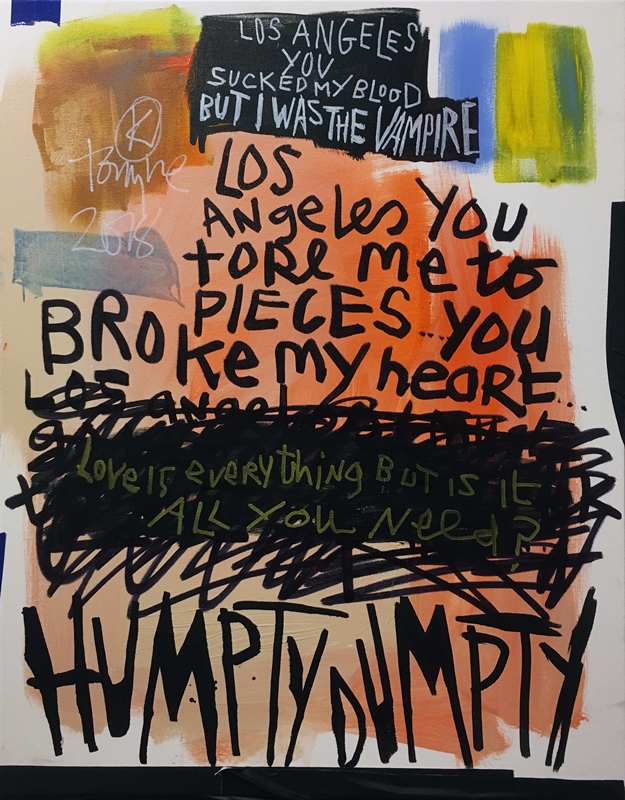 LOS ANGELES
YOU
SUCKED MY BLOOD
BUT I WAS THE VAMPIRE
K
2018
LOS
ANgeles YOU
tORe Me to
PIECES...YOU
BROKe my heaRt...
LOS angel
Love IS eveRything BUT IS It
ALL YOU Need?
HUMPTY DUMPTY